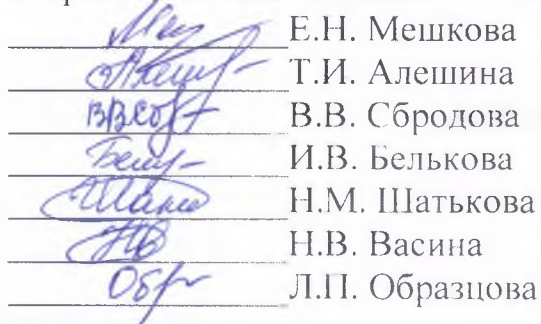 Е.Н. Мешкова
Т.И. Алешина
В.В. Сбродова
И.В. Белькова
Н.М. Шатькова
Н.В. Васина
Л.П. Образцова